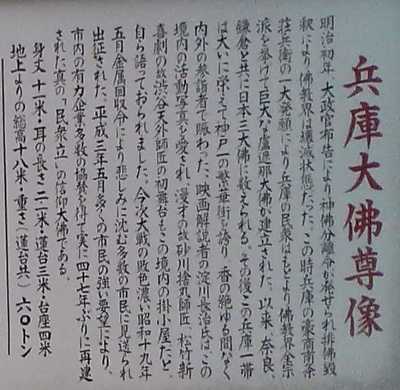 兵庫大佛尊像
明治初年、大政官布告により神佛分離令が発せられ排佛毀
釈により佛教界は壊滅状態だった。この時兵庫の豪商南条
荘兵衛の一大発願により兵庫の民衆はもとより、佛教界全宗
派を挙げて巨大な盧遮那大佛が建立された。以来、奈良、
鎌倉と共に日本三大佛に数えられる。その後この兵庫一帯
は大いに栄えて神戸一の繁華街を誇り、香の絶ゆる間なく
内外の参詣者で賑わった。映画解説者の淀川長治氏はこの
境内の活動写真を愛され、漫才の故砂川捨丸師匠、松竹新
喜劇の故渋谷天外師匠の初舞台もこの境内の掛小屋だと、
自ら語っておられました。今次大戦の敗色濃い昭和十九年
五月金属回収令により悲しみに沈む多数の市民に見送られ
出征された。平成三年五月多くの市民の強い要望により、
市内の有力企業多数の協賛を得て実に四十七年ぶりに再建
された真の「民衆立」の信仰大佛である。
身丈 十一米・耳の長さ 二・一米・蓮台三米・台座四米
地上よりの総高十八米・重さ(蓮台共) 六〇トン